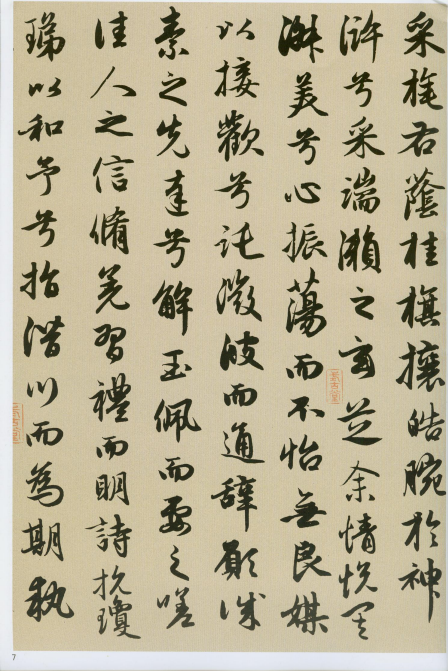 采旄右蔭桂旗攘皓腕於神
滸兮采湍瀨之玄芝余情悅其
淑美兮心振蕩而不怡無良媒
以接歡兮託微波而通辭願誠
素之先達兮解玉佩而要之嗟
佳人之信脩羌習禮而明詩抗瓊
珶以和予兮指潛川而為期執
7